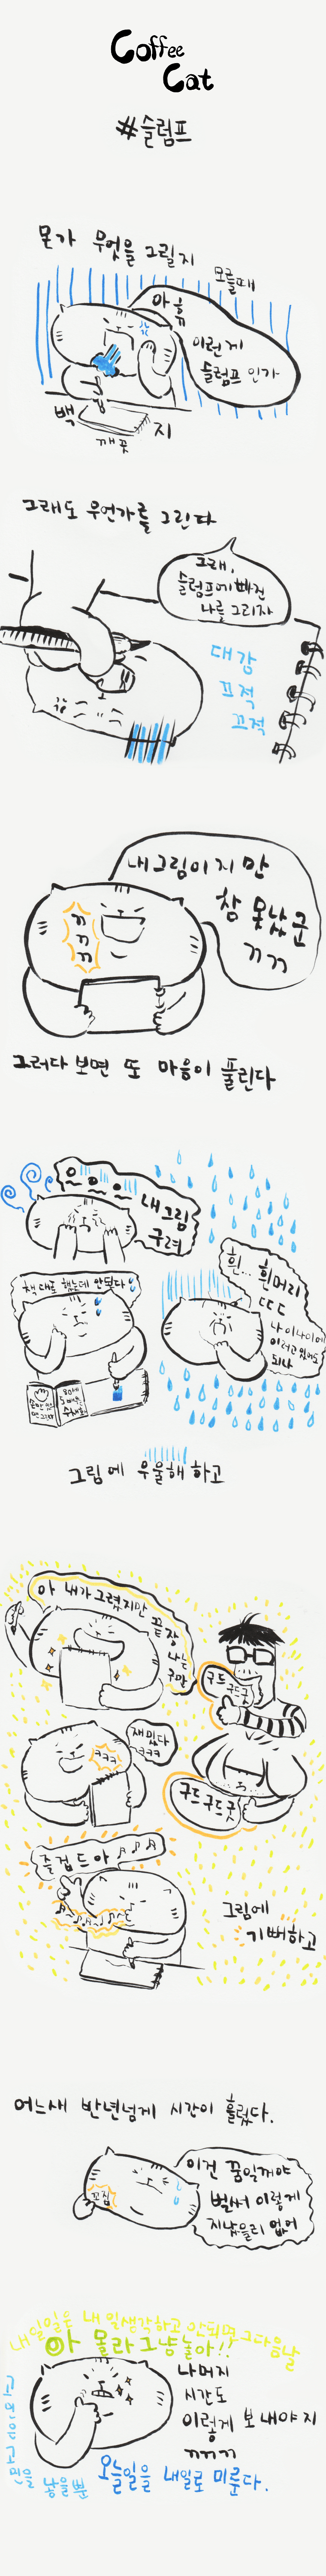 Coffee
Cat
#슬럼프
몬가 무엇을 그릴지
모를때
아휴
이런게
슬럼프인가
백
지
깨끗
그래도 무언가를 그린다
그래,
슬럼프에 빠진
나를 그리자
대강
끄적
끄적
내 그림이지만
참 못났군
ㄲㄲ
ㄲ
ㄲ
ㄲ
그러다 보면 또 마음이 풀린다
으으으
내 그림
구려
책대로 했는데 안된다
흰... 흰머리
ㄷㄷㄷ
나 이나이에
이러고 있어도
되나
그림에 우울해 하고
아 내가 그렸지만 끝장
나는
구만
구드
구드굿
재밌다
ㅋㅋㅋ
ㅋㅋㅋ
구드구드굿
즐겁드아
그림에
기뻐하고
어느새 반년넘게 시간이 흘렀다.
이건 꿈일꺼야
벌써 이렇게
지났을리 없어
꼬집
내일일은 내일생각하고 안되면 그다음날
아 몰라 그냥놀아!!
나머지
시간도
이렇게 보내야지
ㄲㄲㄲ
고민은 고민을
낳을뿐
오늘일을 내일로 미룬다.